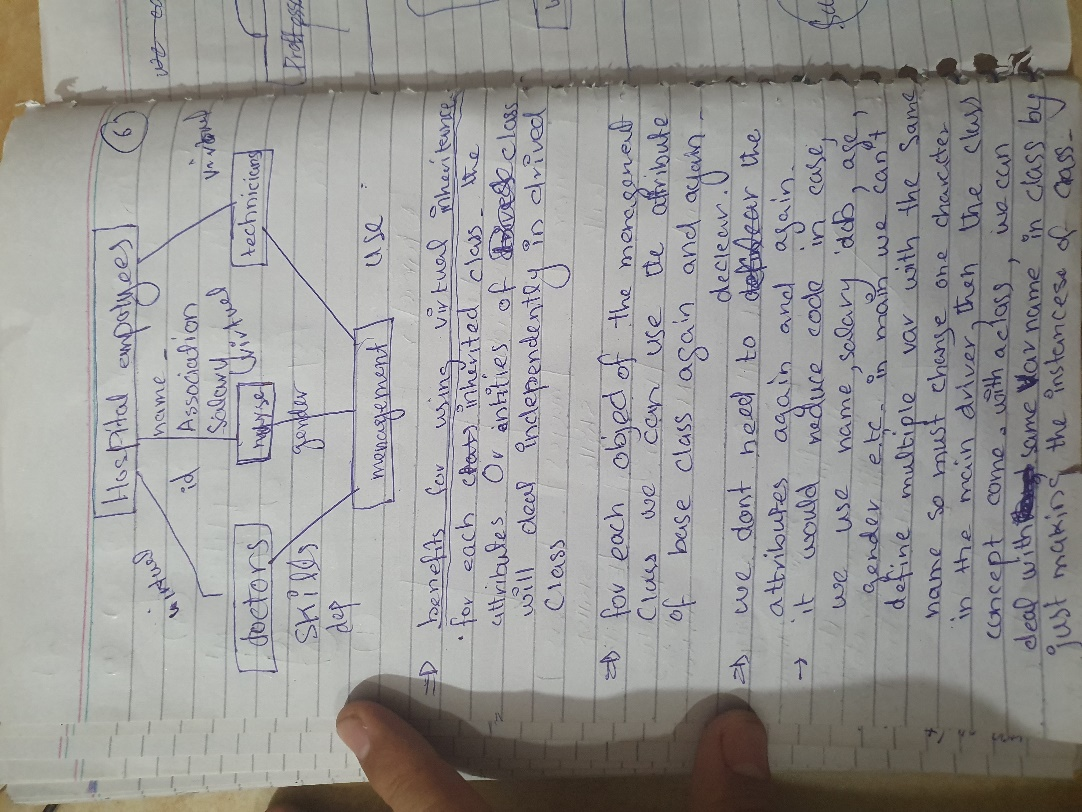 6
Hospital empolyees
virtual
name
virtual
id
Association
Salary
virtual
doctors
nurse
technicians
Skills
gender
dep
management
use :
⇒ benefits for using virtual inheritance
for each inherited class the
attributes Or entities of class
will deal independently in drived
Class
⇒ for each object of the menagement
Class we can use the atribute
of base class again and again
declear.
⇒ we dont need to the
attributes again and again.
→ it would reduce code in case,
we use name, salary, job, age,
gender etc. in main we can't
define multiple var with the same
name so must change one character
in the main driver then the class
concept come. with a class, we can
deal with same Var name, in class by
just making the instancese of class.